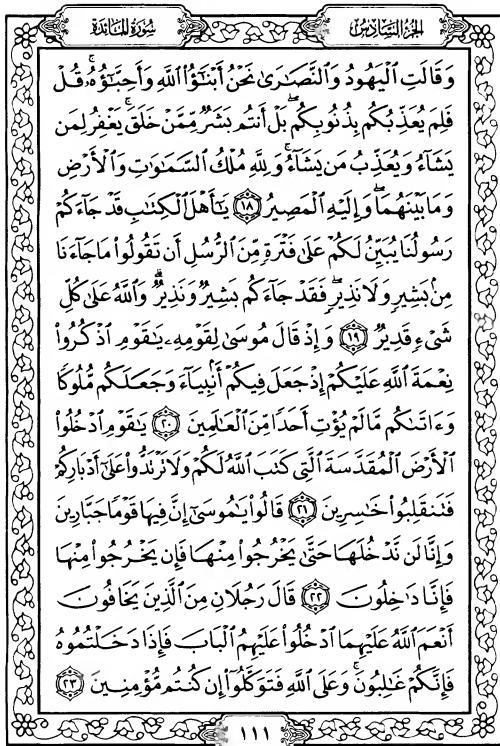 سُورَةُ المَائدة
الجُزءُ السَّادِسُ
وَقَالَتِ ٱلۡيَهُودُ وَٱلنَّصَٰرَىٰ نَحۡنُ أَبۡنَٰٓؤُاْ ٱللَّهِ وَأَحِبَّٰٓؤُهُۥۚ قُلۡ
فَلِمَ يُعَذِّبُكُم بِذُنُوبِكُمۖ بَلۡ أَنتُم بَشَرٞ مِّمَّنۡ خَلَقَۚ يَغۡفِرُ لِمَن
يَشَآءُ وَيُعَذِّبُ مَن يَشَآءُۚ وَلِلَّهِ مُلۡكُ ٱلسَّمَٰوَٰتِ وَٱلۡأَرۡضِ
وَمَا بَيۡنَهُمَاۖ وَإِلَيۡهِ ٱلۡمَصِيرُ ١٨ يَٰٓأَهۡلَ ٱلۡكِتَٰبِ قَدۡ جَآءَكُمۡ
رَسُولُنَا يُبَيِّنُ لَكُمۡ عَلَىٰ فَتۡرَةٖ مِّنَ ٱلرُّسُلِ أَن تَقُولُواْ مَا جَآءَنَا
مِنۢ بَشِيرٖ وَلَا نَذِيرٖۖ فَقَدۡ جَآءَكُم بَشِيرٞ وَنَذِيرٞۗ وَٱللَّهُ عَلَىٰ كُلِّ
شَيۡءٖ قَدِيرٞ ١٩ وَإِذۡ قَالَ مُوسَىٰ لِقَوۡمِهِۦ يَٰقَوۡمِ ٱذۡكُرُواْ
نِعۡمَةَ ٱللَّهِ عَلَيۡكُمۡ إِذۡ جَعَلَ فِيكُمۡ أَنۢبِيَآءَ وَجَعَلَكُم مُّلُوكٗا
وَءَاتَىٰكُم مَّا لَمۡ يُؤۡتِ أَحَدٗا مِّنَ ٱلۡعَٰلَمِينَ ٢٠ يَٰقَوۡمِ ٱدۡخُلُواْ
ٱلۡأَرۡضَ ٱلۡمُقَدَّسَةَ ٱلَّتِي كَتَبَ ٱللَّهُ لَكُمۡ وَلَا تَرۡتَدُّواْ عَلَىٰٓ أَدۡبَارِكُمۡ
فَتَنقَلِبُواْ خَٰسِرِينَ ٢١ قَالُواْ يَٰمُوسَىٰٓ إِنَّ فِيهَا قَوۡمٗا جَبَّارِينَ
وَإِنَّا لَن نَّدۡخُلَهَا حَتَّىٰ يَخۡرُجُواْ مِنۡهَا فَإِن يَخۡرُجُواْ مِنۡهَا
فَإِنَّا دَٰخِلُونَ ٢٢ قَالَ رَجُلَانِ مِنَ ٱلَّذِينَ يَخَافُونَ
أَنۡعَمَ ٱللَّهُ عَلَيۡهِمَا ٱدۡخُلُواْ عَلَيۡهِمُ ٱلۡبَابَ فَإِذَا دَخَلۡتُمُوهُ
فَإِنَّكُمۡ غَٰلِبُونَۚ وَعَلَى ٱللَّهِ فَتَوَكَّلُوٓاْ إِن كُنتُم مُّؤۡمِنِينَ ٢٣
١١١